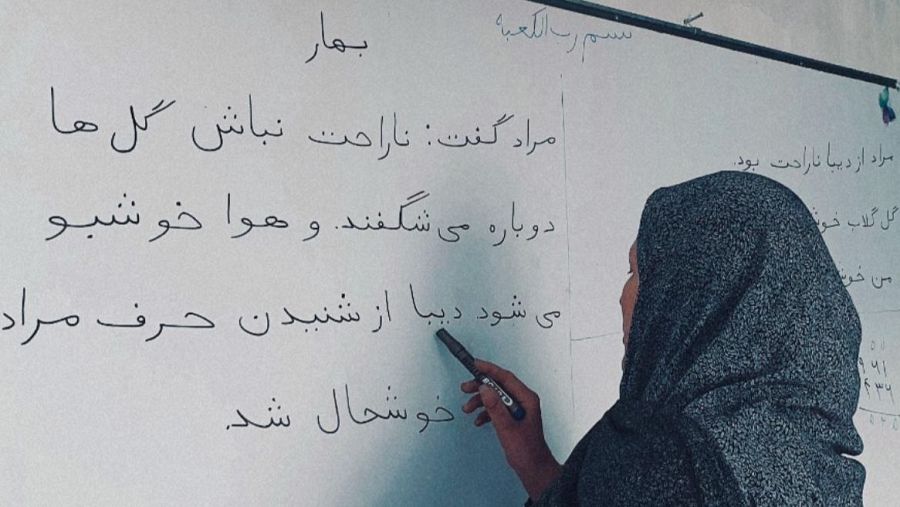 بسم رب الکعبه
بهار
مراد گفت: ناراحت نباش گل ها
دوباره می شگفند. و هوا خوشبو
می شود. دیبا از شنیدن حرف مراد
خوشحال شد.
مراد از دیبا ناراحت بود.
گل گلاب
من